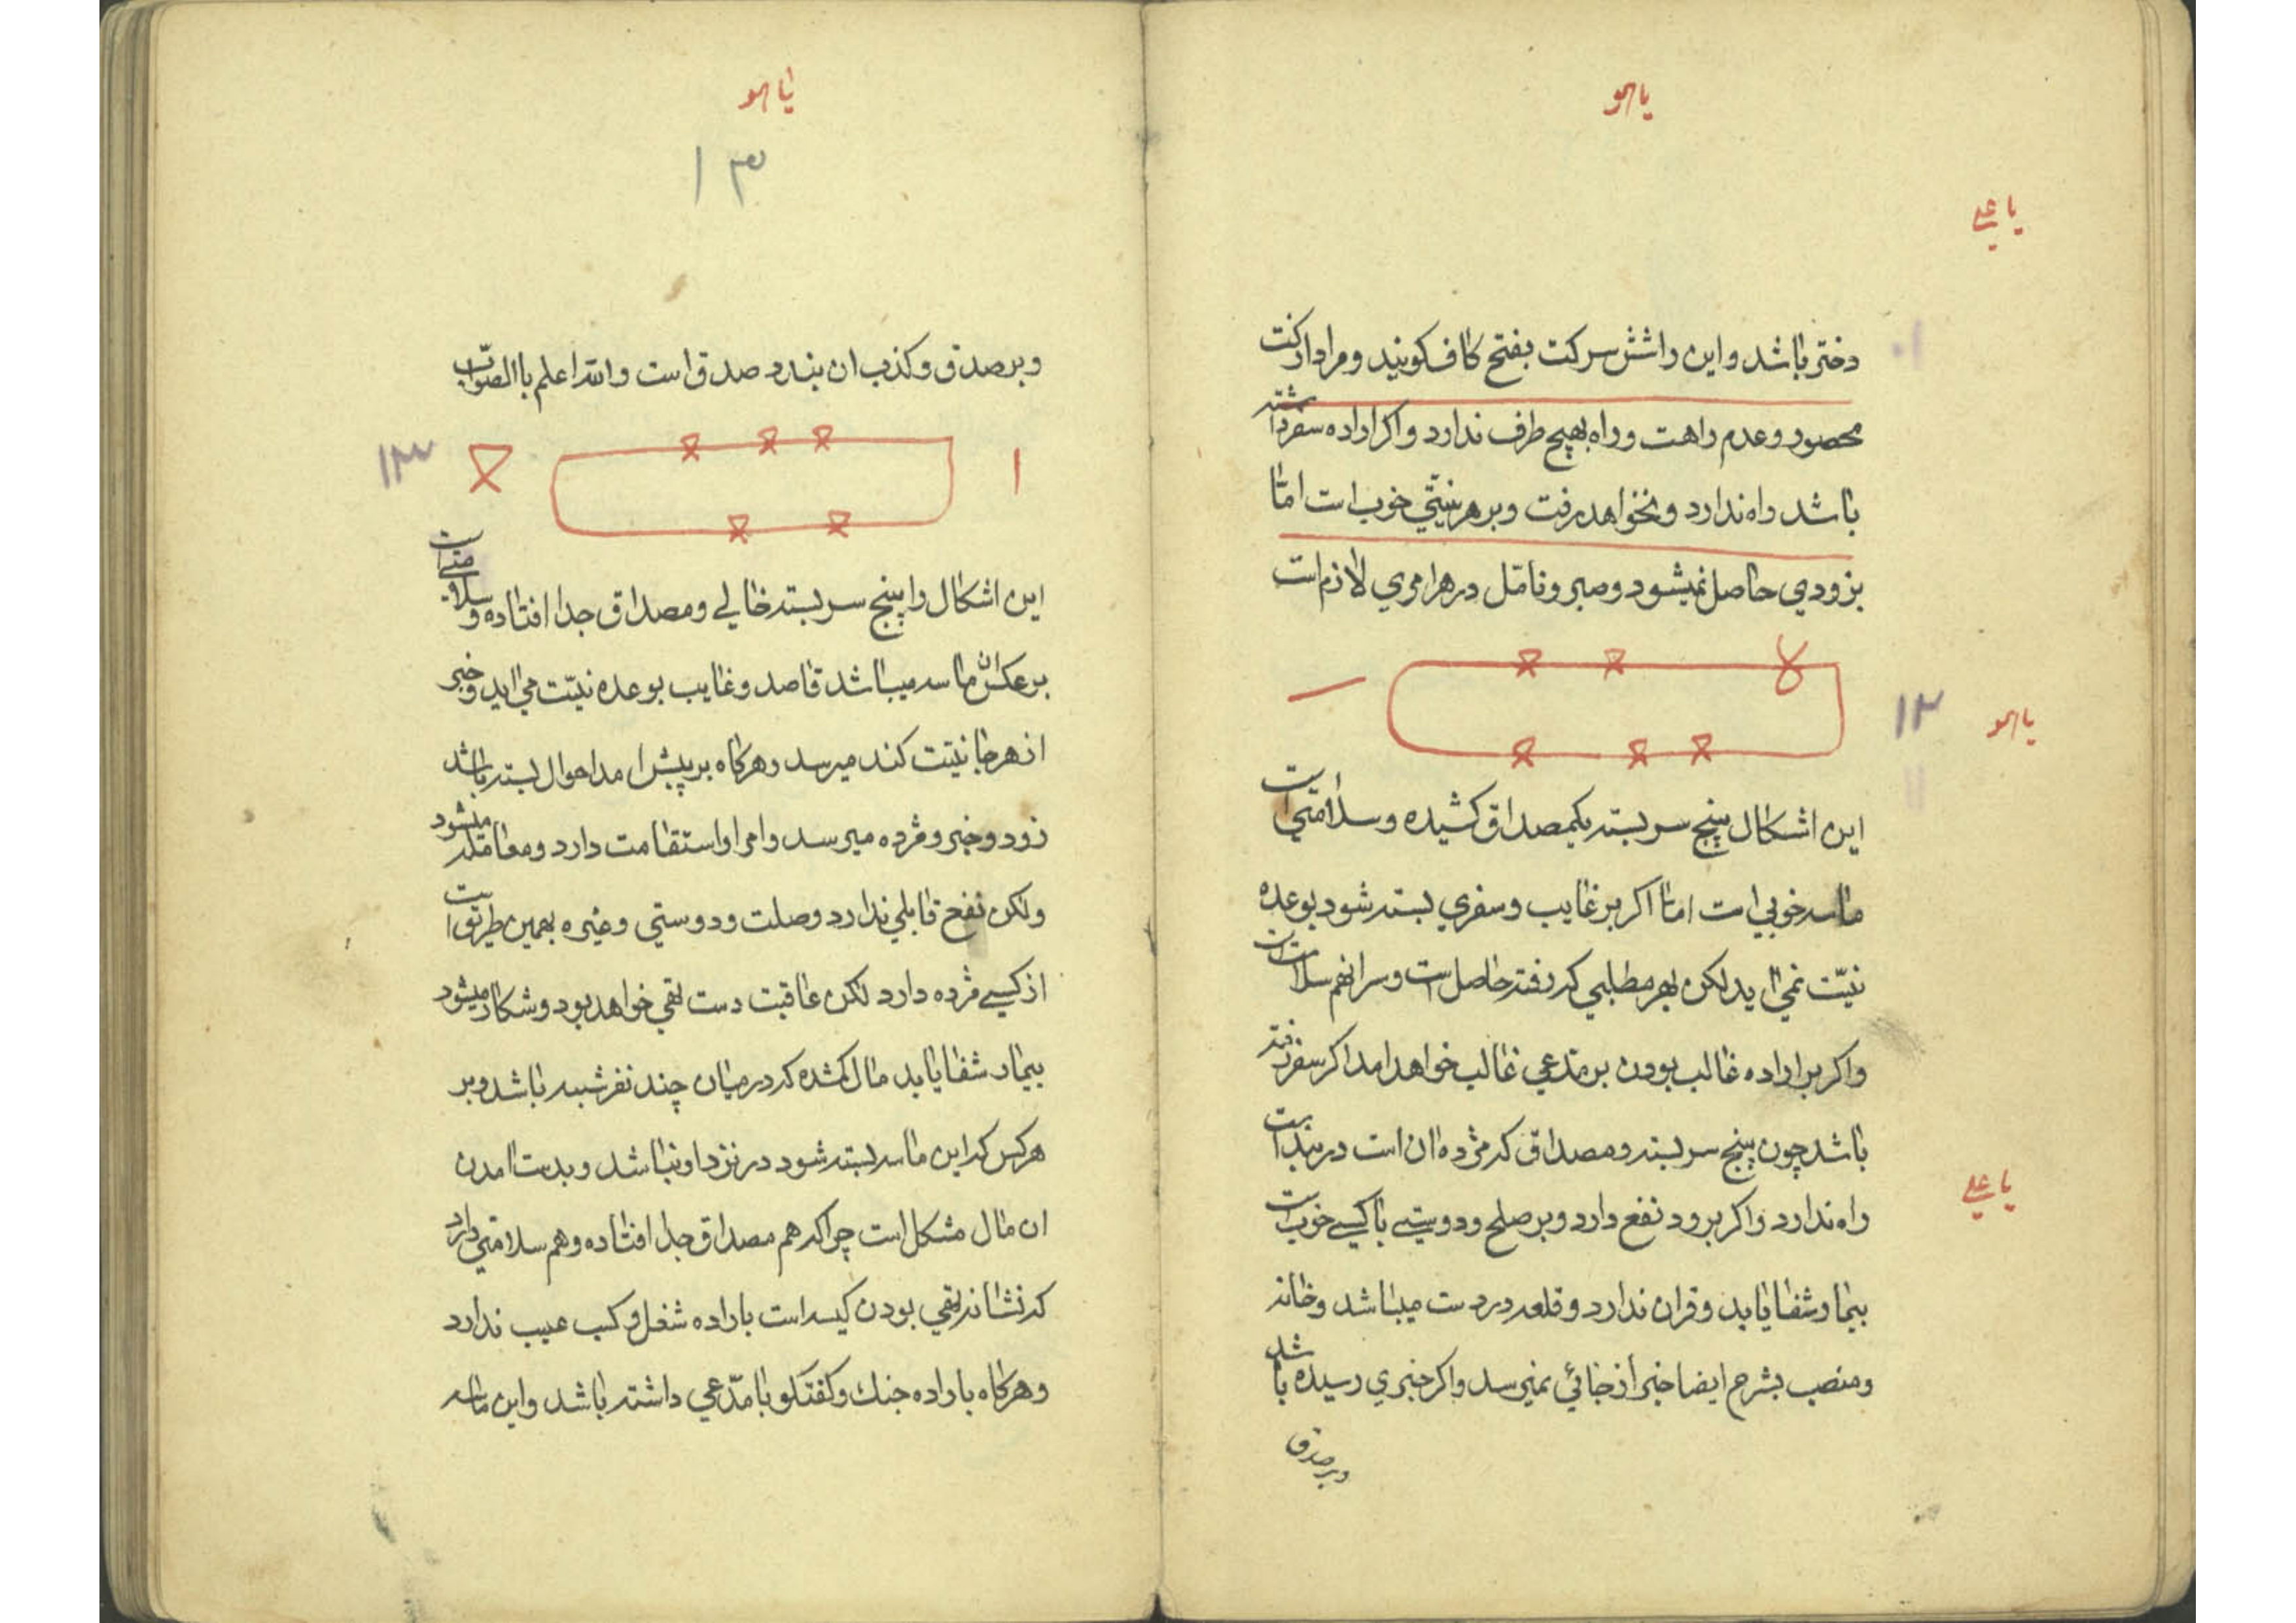 یا هو
یا علی
دختر باشد و این را شش سر کت بفتح کاف کویند و مراد از کت
محصور و عدم راهت و راه بهیچ طرف ندارد و اکر اراده سفر داشته
باشد راه ندارد و نخواهد رفت و بر هر نیتی خوب است امّا
بزودی حاصل نمیشود و صبر و تامّل در هر اموری لازم است
۱۲
یا هو
این اشکال پنج سر بسته یکمصداق کشیده و سلامتی است
ماسه خوبی است اما اکر بر غایب و سفری بسته شود بوعده
نیّت نمی آید لکن بهر مطلبی که رفته حاصل است و سرانهم سلامت است
و اکر بر اراده غالب بودن بر مدّعی غالب خواهد امد اکر سفر رفته
باشد چون پنج سر بسته و مصداق که مژده ان است در بند است
یا علی
راه ندارد و اکر برود نفع دارد و بر صلح و دوستی با کسی خوب است
بیمار شفا یابد و قران ندارد و قلعه در دست میباشد و خانه
و منصب بشرح ایضا خبر از جائی نمیرسد و اکر خبری رسیده باشد
و بر صدق
یا هو
۱۳
و بر صدق و کذب ان بندد صدق است والله اعلم باالصّواب
۱
۱۳
این اشکال را پنج سر بسته خالی و مصداق جدا افتاده و سلامتی است
بر عکس ان ماسه میباشد قاصد و غایب بوعده نیّت می اید و خبر
از هر جا نیّت کند میرسد و هر کاه بر پیش امد احوال بسته باشد
زود و خبر و مژده میرسد و امر او استقامت دارد و معامله میشود
ولکن نفع قابلی ندارد و وصلت و دوستی و غیره بهمین طریق است
از کسی مژده دارد لکن عاقبت دست تهی خواهد بود و شکار میشود
بیمار شفا یابد مال کمشده که در میان چند نفر شبهه باشد و بر
هر کس که این ماسه بسته شود در نزد او نباشد و بدست امدن
ان مال مشکل است چرا که هم مصداق جدا افتاده و هم سلامتی دارد
که نشانه تهی بودن کیسه است باراده شغل و کسب عیب ندارد
و هر کاه باراده جنك و کفتکو با مدّعی داشته باشد و این ماسه